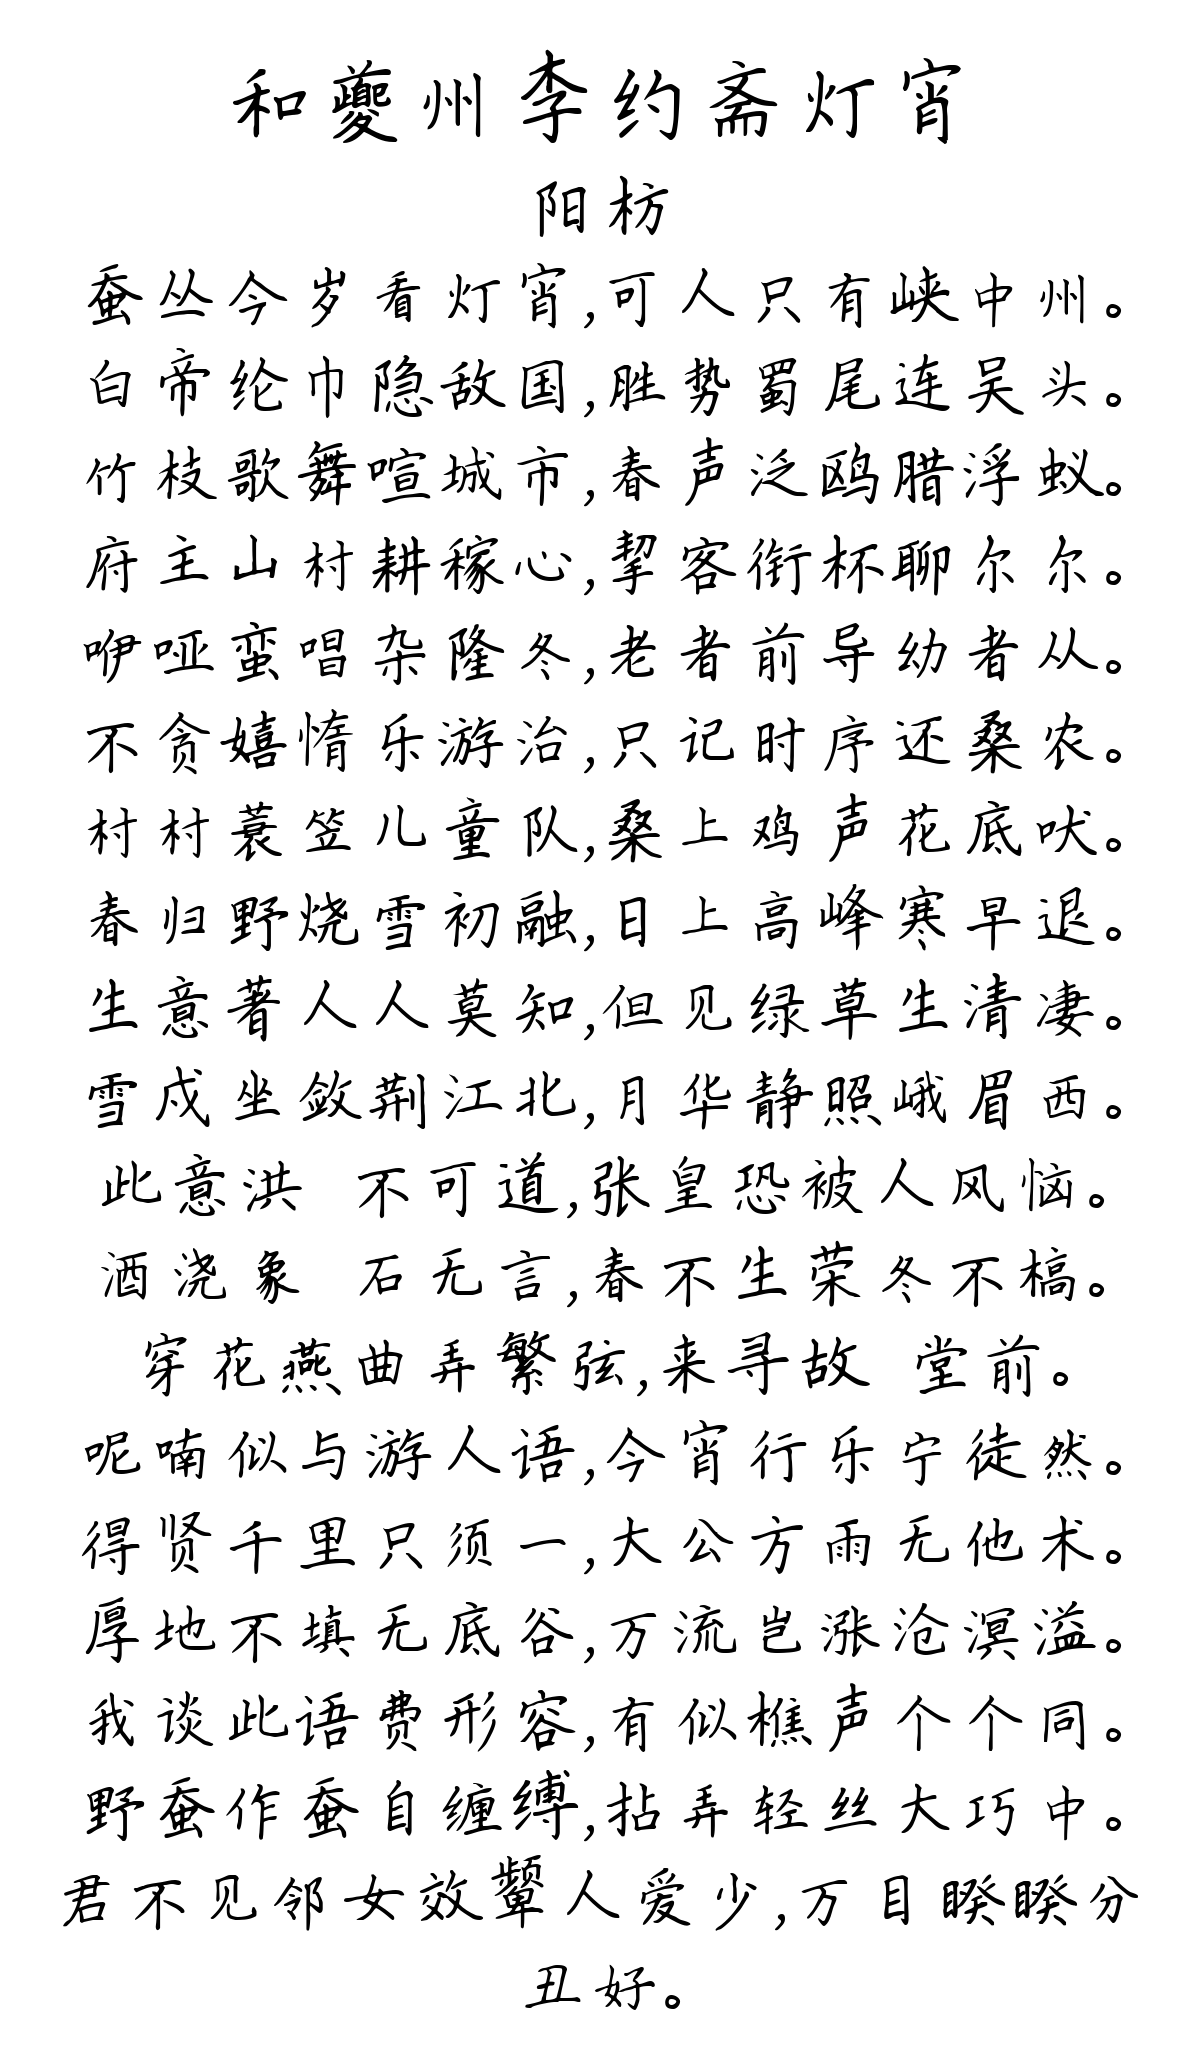 和夔州李约斋灯宵
阳枋
蚕丛今岁看灯宵,可人只有峡中州。
白帝纶巾隐敌国,胜势蜀尾连吴头。
竹枝歌舞喧城市,春声泛鸥腊浮蚁。
府主山村耕稼心,挈客衔杯聊尔尔。
咿哑蛮唱杂隆冬,老者前导幼者从。
不贪嬉惰乐游冶,只记时序还桑农。
村村蓑笠儿童队,桑上鸡声花底吠。
春归野烧雪初融,日上高峰寒早退。
生意著人人莫知,但见绿草生清凄。
雪戍坐敛荆江北,月华静照峨眉西。
此意洪 不可道,张皇恐被人风恼。
酒浇象 石无言,春不生荣冬不槁。
穿花燕曲弄繁弦,来寻故 堂前。
呢喃似与游人语,今宵行乐宁徒然。
得贤千里只须一,大公方雨无他术。
厚地不填无底谷,万流岂涨沧溟溢。
我谈此语费形容,有似樵声个个同。
野蚕作蚕自缠缚,拈弄轻丝大巧中。
君不见邻女效颦人爱少,万目睽睽分
丑好。